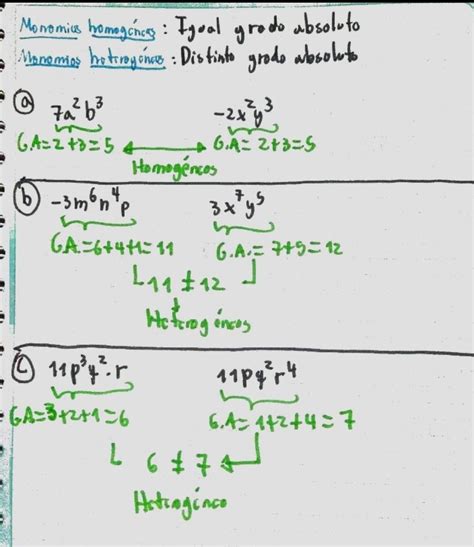 Monomios homogéneos : Igual grado absoluto
Monomios heterogéneos : Distinto grado absoluto
a) 7a²b³ -2x²y³
G.A=2+3=5 ↔ G.A= 2+3=5
Homogéneos
b) -3m⁶n⁴p 3x⁷y⁵
G.A.=6+4+1=11 G.A.= 7+5=12
11 ≠ 12
Heterogéneos
c) 11p³q².r 11pq²r⁴
G.A=3+2+1=6 G.A= 1+2+4=7
6 ≠ 7
Heterogéneo